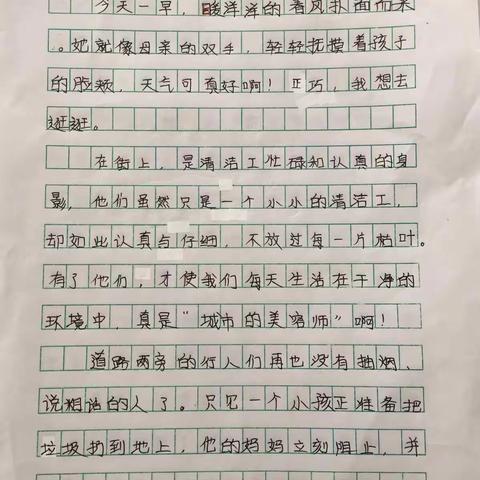 今天一早，暖洋洋的春风扑面而来
。她就像母亲的双手，轻轻抚摸着孩子
的脸颊，天气可真好啊！正巧，我想去
逛逛。
在街上，是清洁工忙碌和认真的身
影，他们虽然只是一个小小的清洁工，
却如此认真与仔细，不放过每一片枯叶。
有了他们，才使我们每天生活在干净的
环境中，真是“城市的美容师”啊！
道路两旁的行人们再也没有抽烟、
说粗话的人了。只见一个小孩正准备把
垃圾扔到地上，他的妈妈立刻阻止，并